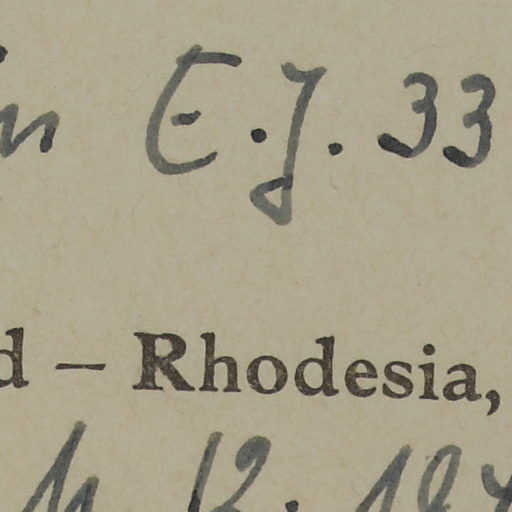 in E.J. 33
d – Rhodesia,
12. 197